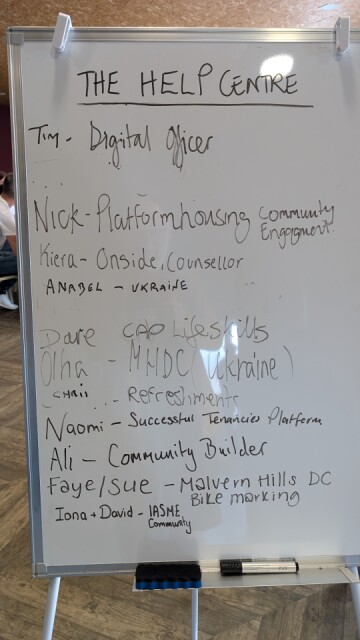 THE HELP CENTRE
Tim - Digital Officer
Nick - Platformhousing Community
Engagment.
Kiera - Onside, Counsellor
ANABEL - UKRAINE
Dave CAP Lifeskills
Olha - MHDC (Ukraine)
CHRIS - Refreshments
Naomi - Successful Tenancies Platform
Ali - Community Builder
Faye/Sue - Malvern Hills DC
Bike marking
Iona + David - IASME
Community